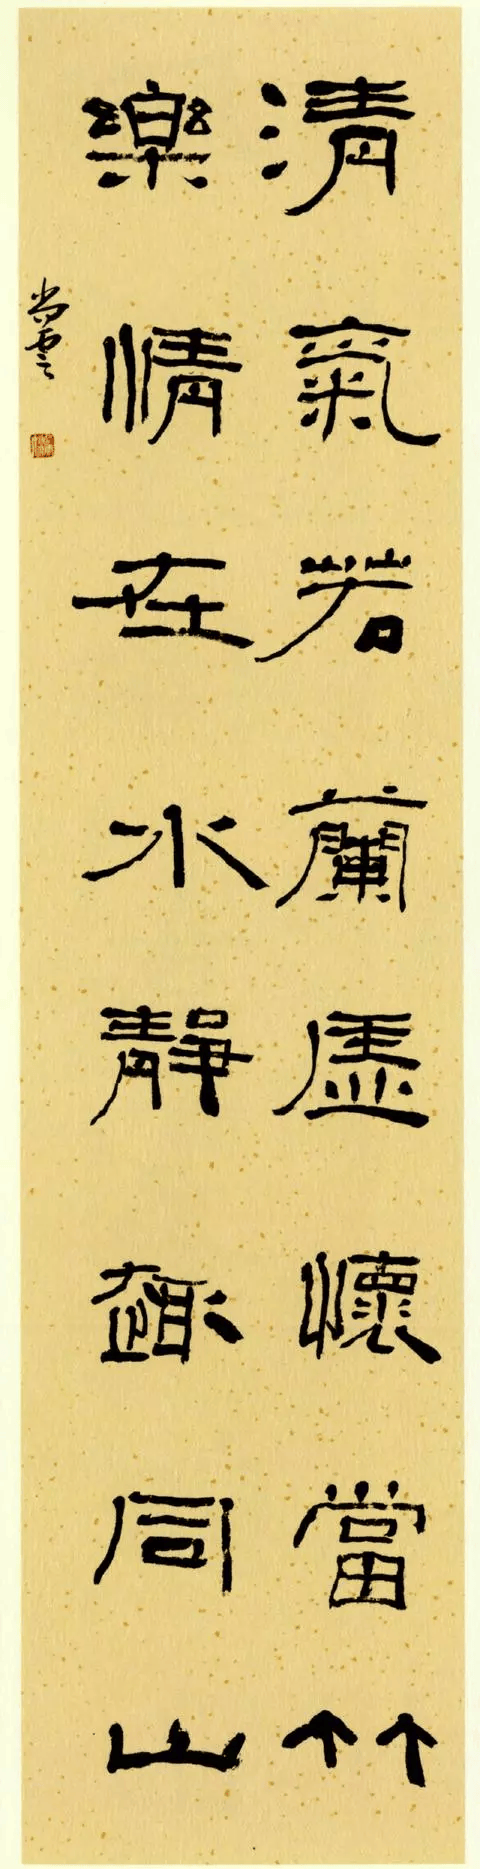 清氣若蘭虛懷當竹
樂情在水靜趣同山
尚雲